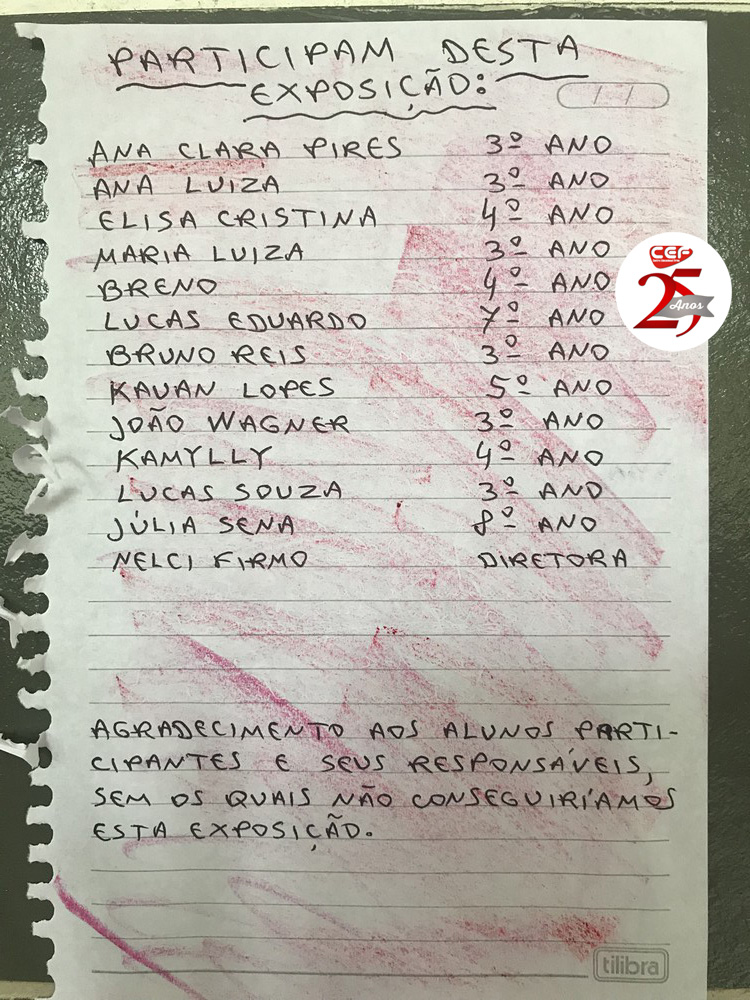 PARTICIPAM DESTA
EXPOSIÇÃO:
ANA CLARA PIRES 3º ANO
ANA LUIZA 3º ANO
ELISA CRISTINA 4º ANO
MARIA LUIZA 3º ANO
BRENO 4º ANO
LUCAS EDUARDO 7º ANO
BRUNO REIS 3º ANO
KAUAN LOPES 5º ANO
JOÃO WAGNER 3º ANO
KAMYLLY 4º ANO
LUCAS SOUZA 3º ANO
JÚLIA SENA 8º ANO
NELCI FIRMO DIRETORA
AGRADECIMENTO AOS ALUNOS PARTI-
CIPANTES E SEUS RESPONSÁVEIS,
SEM OS QUAIS NÃO CONSEGUIRÍAMOS
ESTA EXPOSIÇÃO.
CEP
25 Anos
tilibra